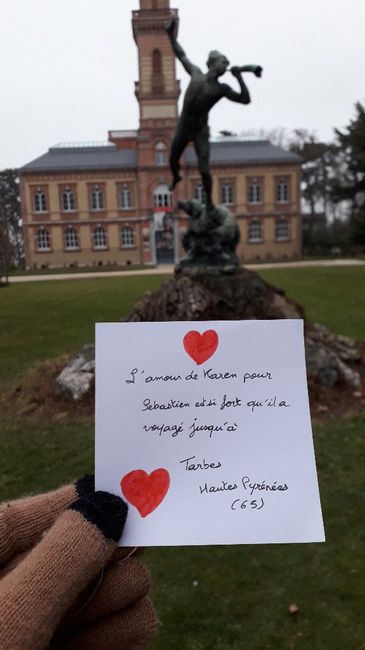 L'amour de Karen pour
Sébastien est si fort qu'il a
voyagé jusqu'à
Tarbes
Hautes Pyrénées
(65)